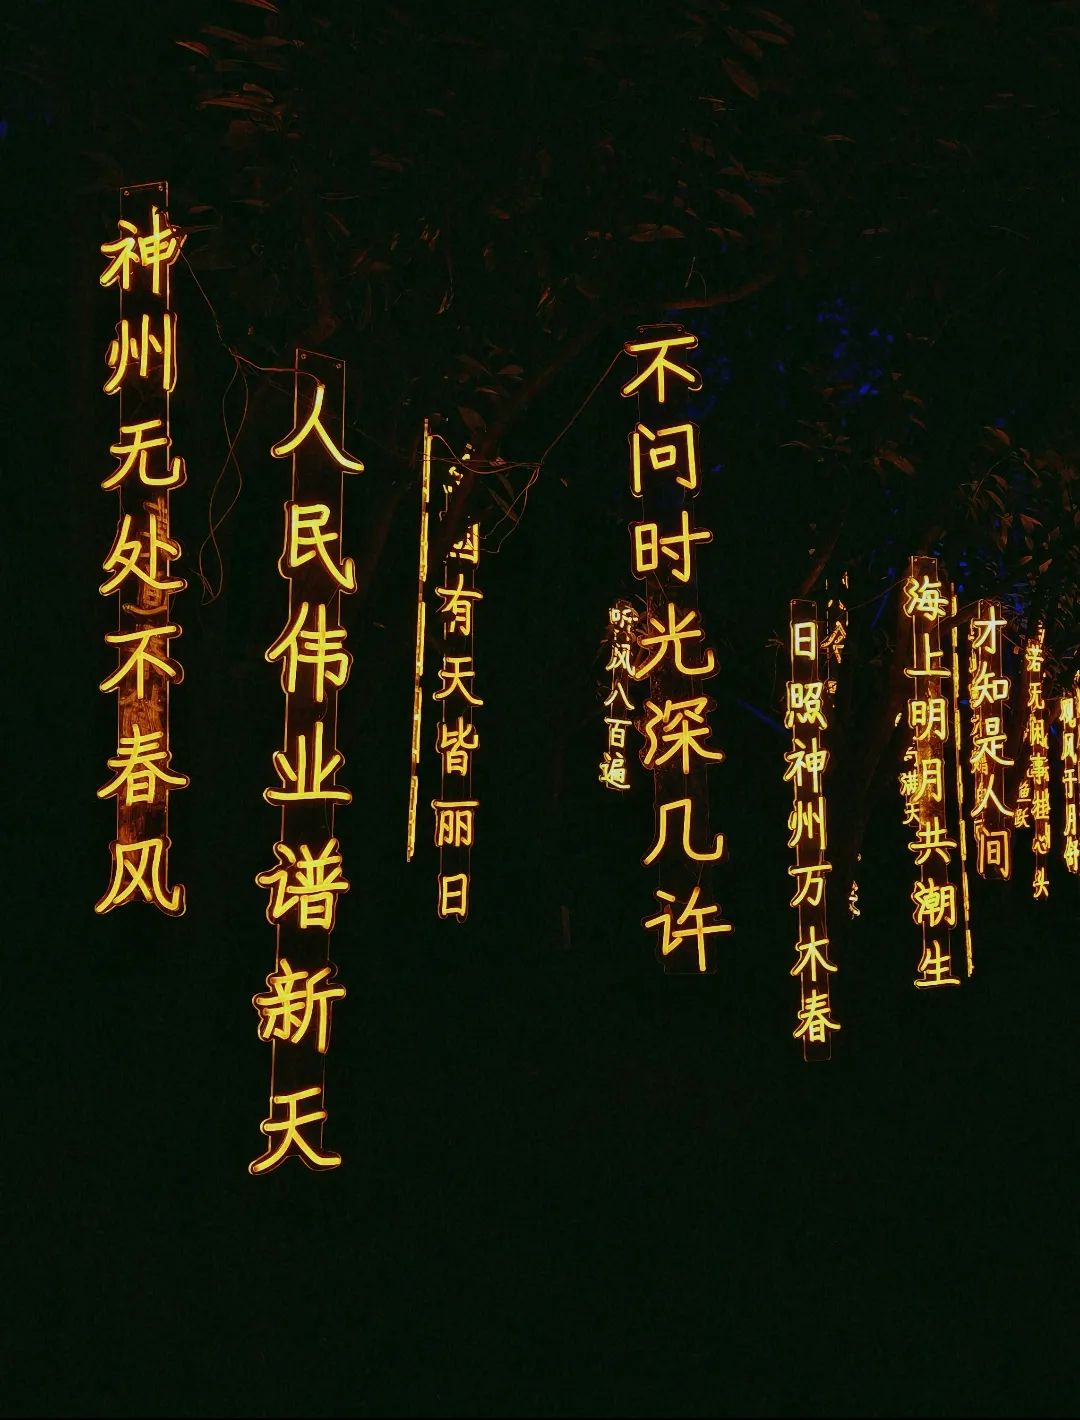 神州无处不春风
人民伟业谱新天
有天皆丽日
听风八百遍
不问时光深几许
日照神州万木春
满天
海上明月共潮生
才知是人间
鱼跃
若无闲事挂心头
观风于月